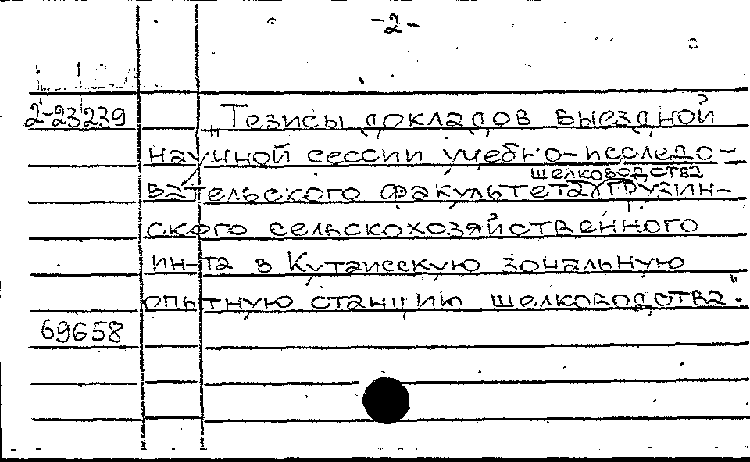 -2-
2-23239 „Тезисы докладов выездной
научной сессии учебно-исследо-
шелководства
вательского факультета Грузин-
ского сельскохозяйственного
ин-та в Кутаисскую зональную
опытную станцию шелководства".
69658